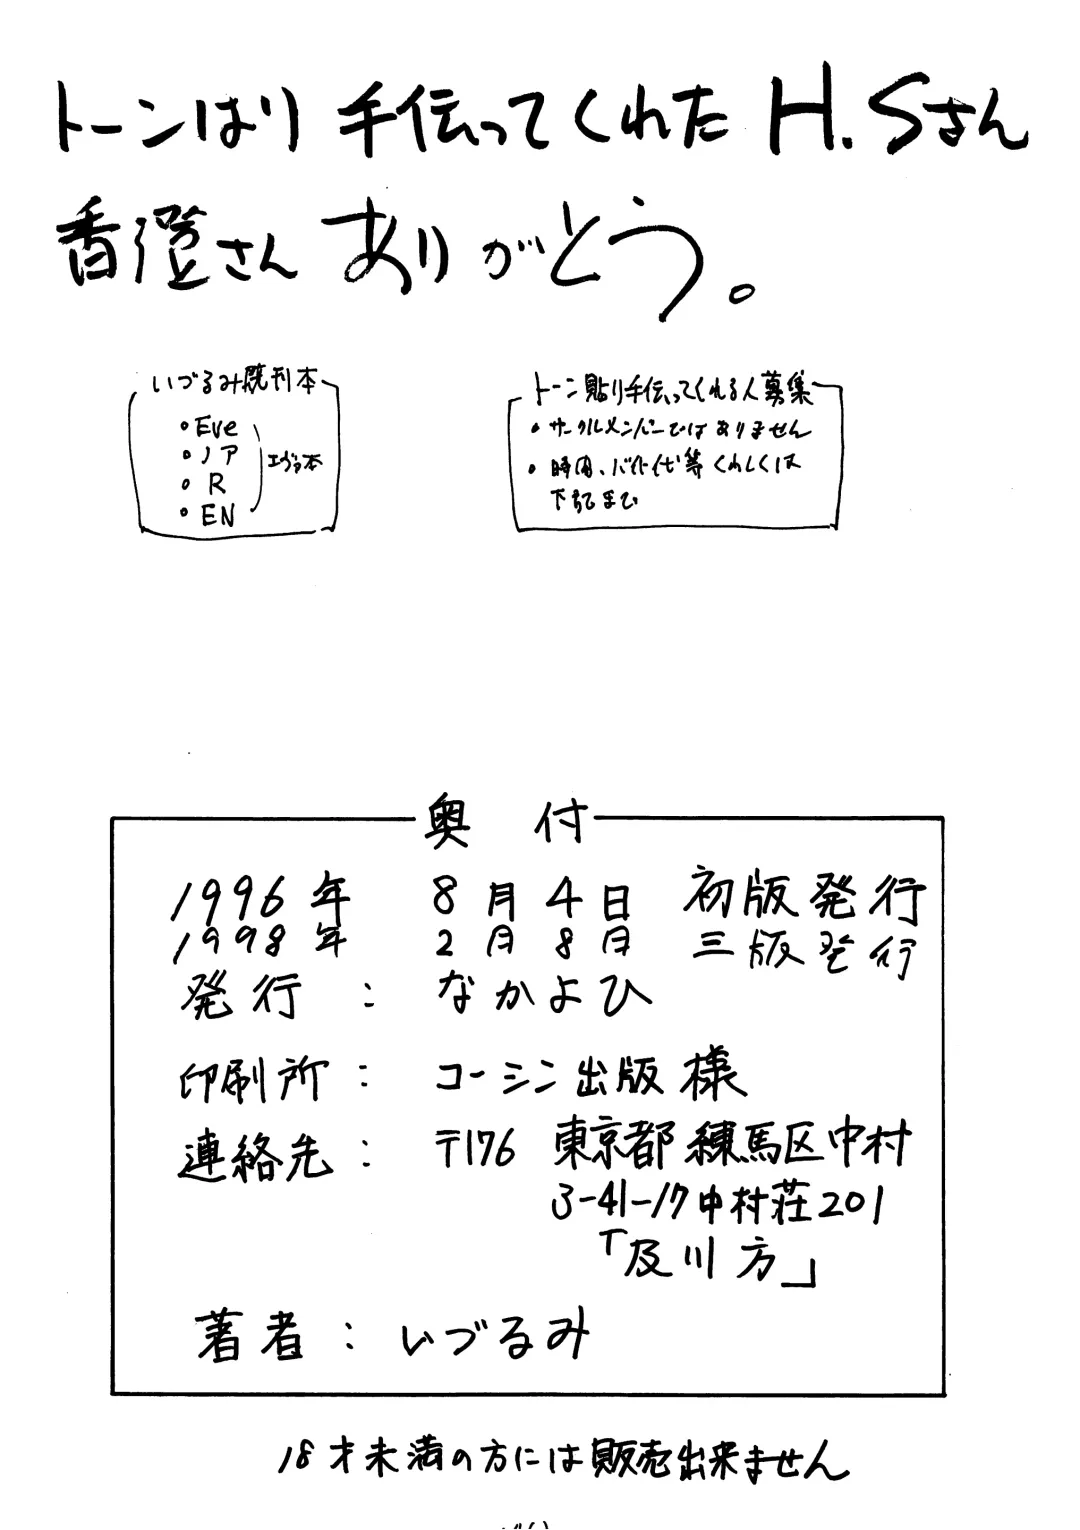 トーンはり 手伝ってくれた H.Sさん
香澄さん ありがとう。
いづるみ既刊本
• Eve
• ノア
• R
• EN
エヴァ本
トーン貼り手伝ってくれる人募集
• サークルメンバーではありません
• 時間、バイト代等くわしくは
下記まで
奥付
1996年 8月4日 初版発行
1998年 2月8日 三版発行
発行 : なかよひ
印刷所 : コーシン出版 様
連絡先 : 〒176 東京都練馬区中村
3-41-17 中村荘201
「及川方」
著者 : いづるみ
18才未満の方には販売出来ません